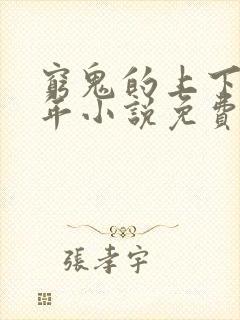 窮鬼的上下
年小說免費
張孝宇